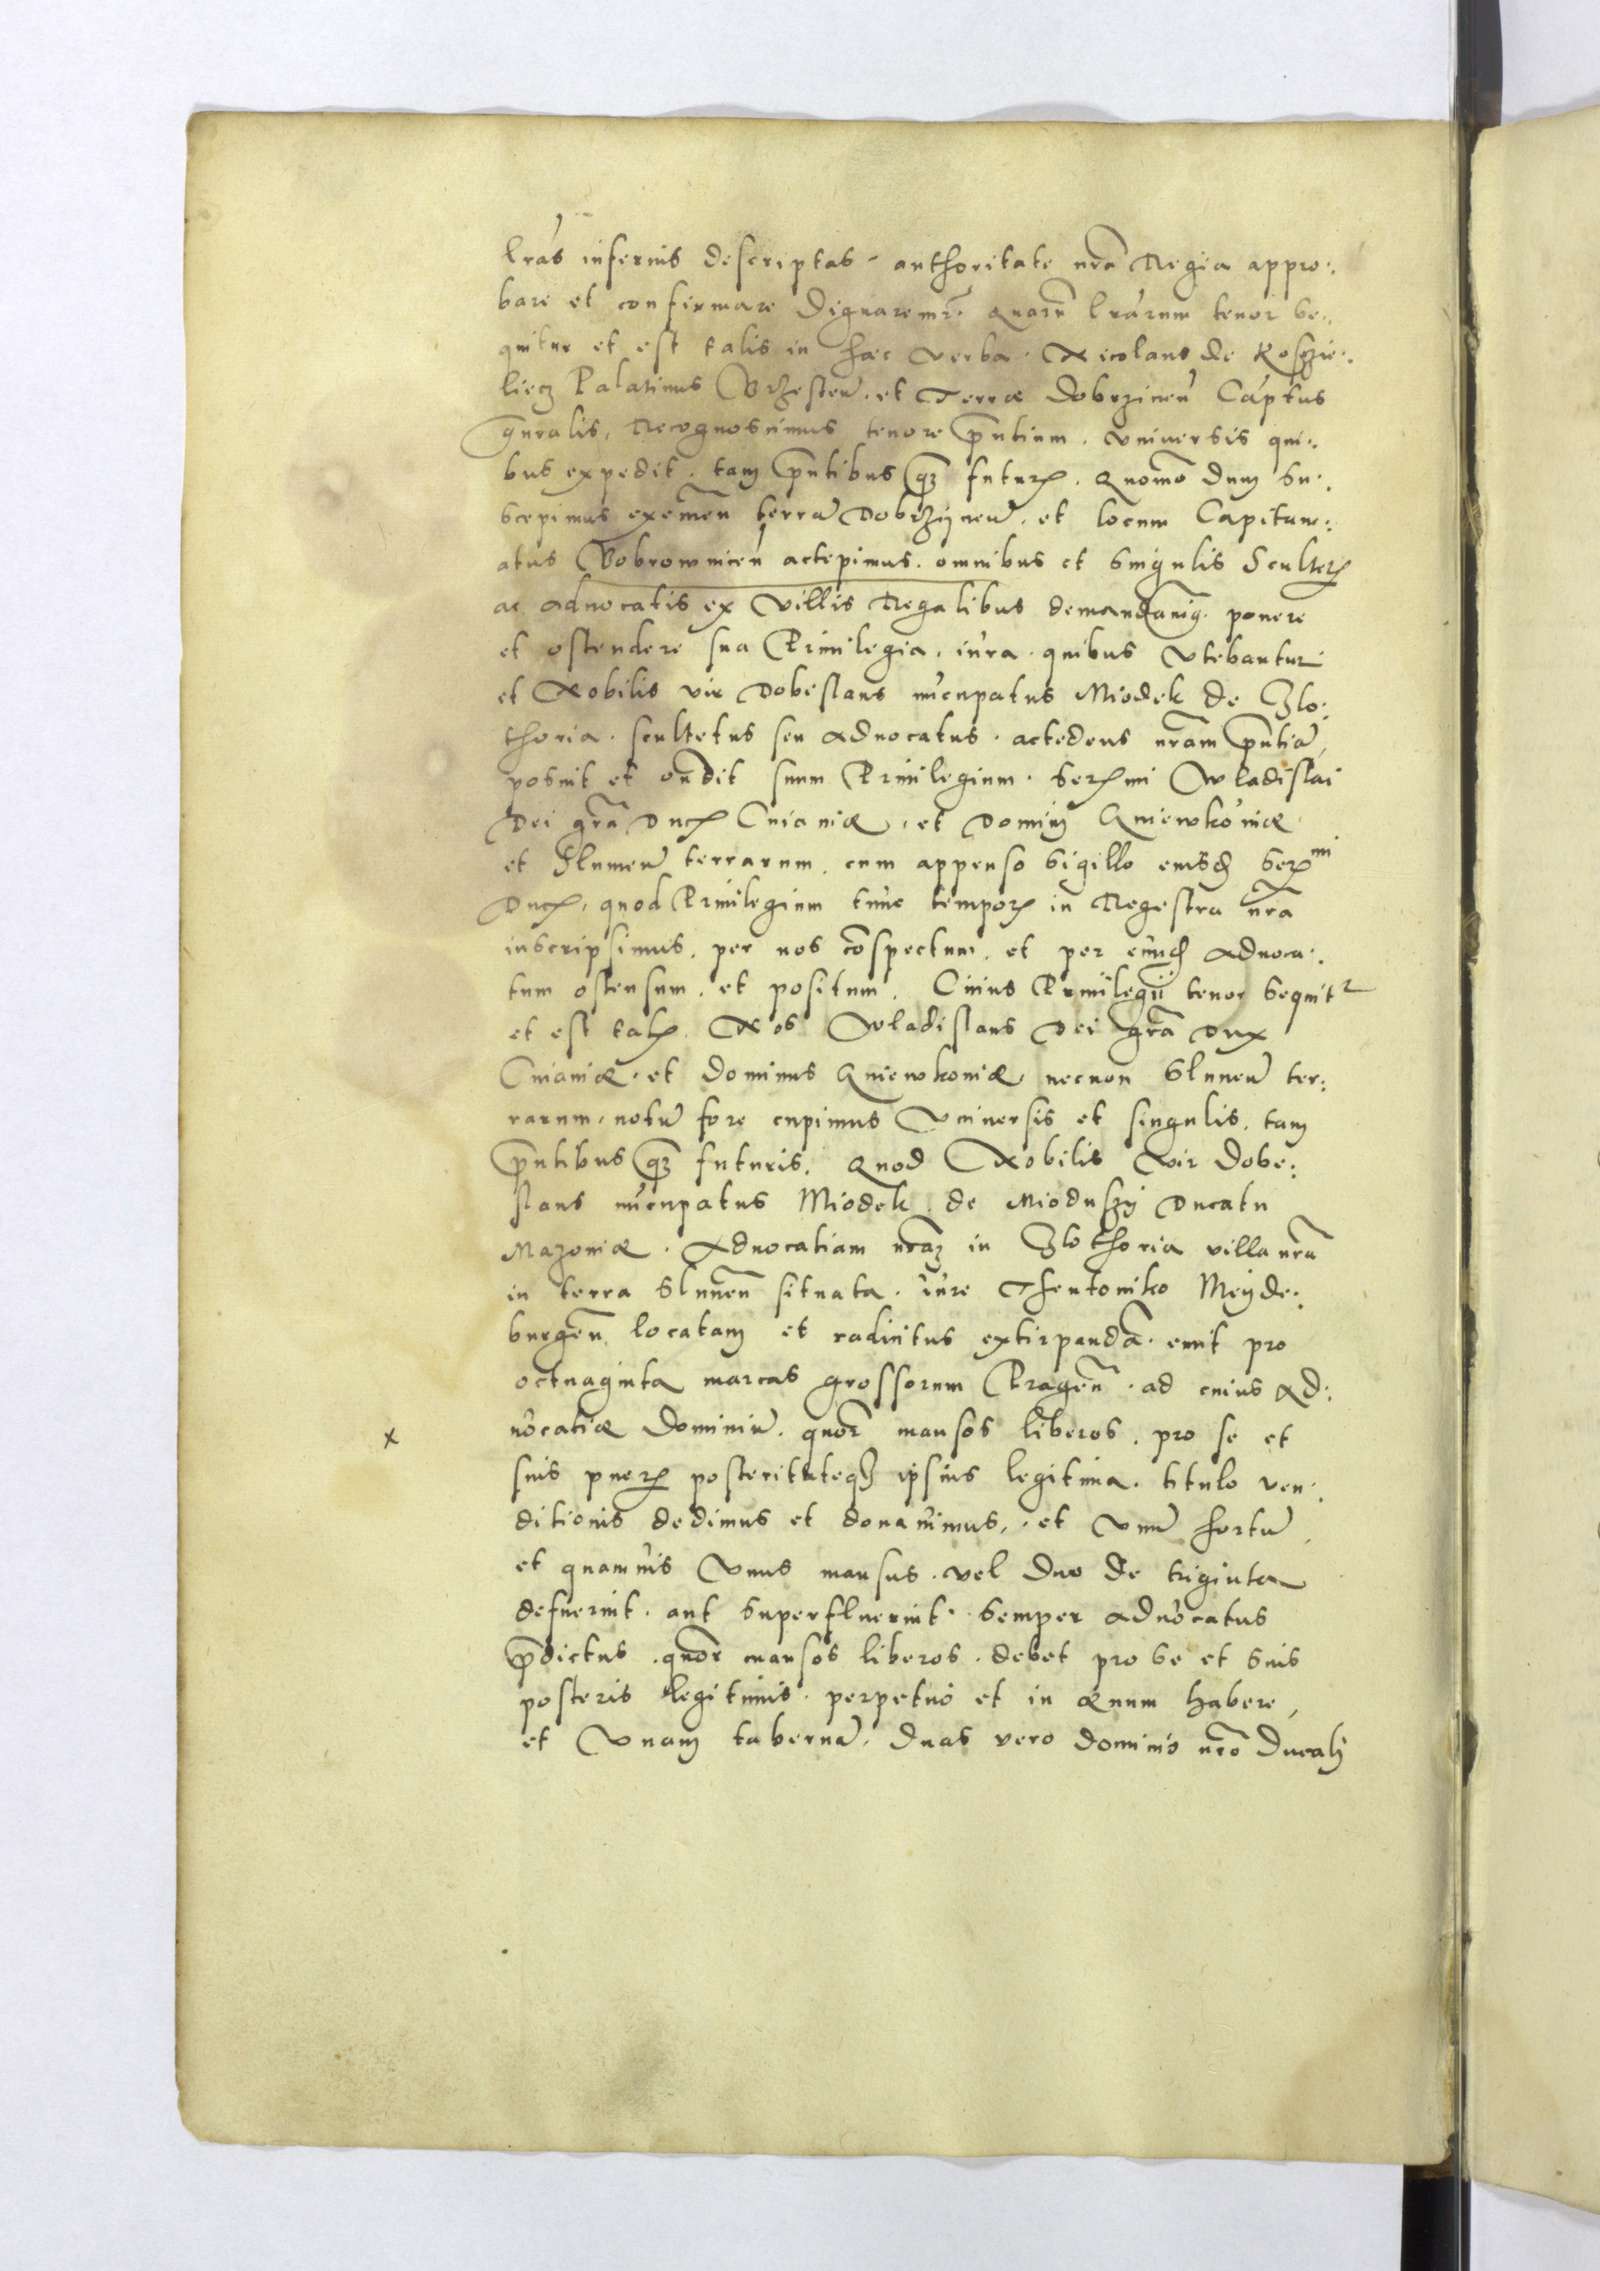 lras inferius descriptas. authoritate nra Regia appro:
bare et confirmare dignaremr. Quaru lrarum tenor se:
quitur et est talis in haec verba. Nicolaus de Koszie:
liecz Palatinus Brzesten. et Terrae Dobrzinen Captus
gnralis, Recognoscimus tenore pntium. Universis qui:
bus expedit. tam pntibus qz futuris. Quomo dum su:
scepimus exemen terrae Dobrzynen. et locum Capitane:
atus Bobrownicen accepimus. omnibus et singulis Scultetis
ac Advocatis ex villis Regalibus demandavimg. ponere
et ostendere sua Privilegia. iura. quibus utebantur
et Nobilis vir Dobeslaus nucupatus Miodek de Zlo:
thoria. scultetus seu Advocatus. accedens nram pntia,
posuit et ondit suum Privilegium. Serssmi Wladislai
Dei gra Ducis Cuiaviae. et Domini Gniewkoviae
et Slumen terrarum. cum appenso sigillo eiusd Serssmi
Ducis, quod Privilegium tunc temporis in Regestra nra
inscripsimus. per nos cospectum. et per eund Advoca:
tum ostensum. et positum. Cuius Privilegii tenor sequitr
et est talis. Nos Wladislaus Dei gra Dux
Cuiaviae. et Dominus Gniewkoviae necnon Slunen ter:
rarum. notu fore cupimus Universis et singulis. tam
pntibus qz futuris. Quod Nobilis vir Dobe:
slaus nucupatus Miodek. de Mioduszy Ducatu
Mazoviae. Advocatiam nraz in Zlothoria villa nra
in terra Slunen situata. iure Theutoniko Meyde:
burgen locatam et radicitus extirpanda. emit pro
octuaginta marcas grossorum Pragen. ad cuius Ad:
vocatiae Dominiu. quor mansos liberos. pro se et
suis pueris posteritateqz ipsius legitima. titulo ven:
ditionis dedimus et donavimus. et unu hortu,
et quamvis Unus mansus. vel duo de triginta
defuerint. aut superfluerint. Semper Advocatus
pdictus. quor mansos liberos. debet pro se et suis
posteris legitimis. perpetuo et in aevum habere,
et Unam taberna. duas vero dominio nro Ducali
x